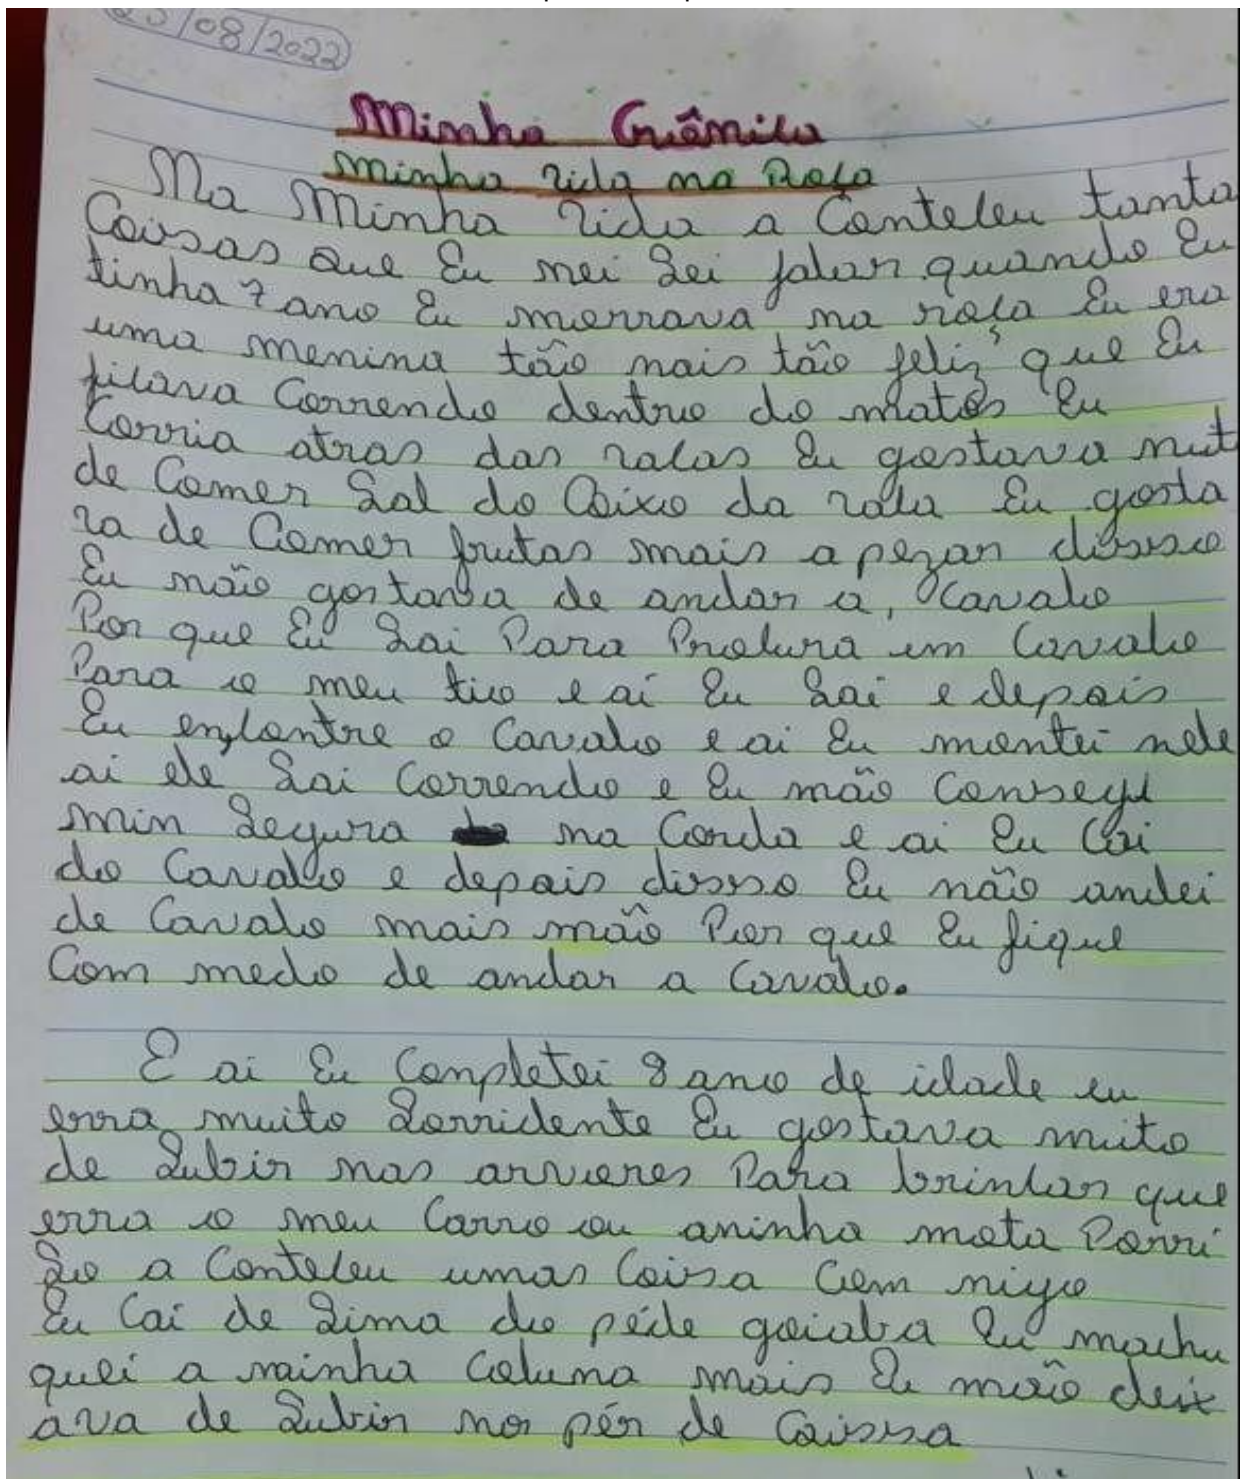 /08/2022
Minha Crônica
minha vida na Roça
Na Minha vida a Conteceu tanta
Coisas que Eu nei Sei falar quando Eu
tinha 7 ano Eu morrava na roça Eu era
uma menina tão mais tão feliz que Eu
ficava Correndo dentro do matos Eu
Corria atras das vacas Eu gostava muit
de Comer Sal do Coixo da vaca Eu gosta
va de Comer frutas mais a pezar dissso
Eu não gostava de andar a, Cavalo
Por que Eu Sai Para Procura um Cavalo
Para o meu tio e ai Eu Sai e depois
Eu encontre o Cavalo e ai Eu montei nele
ai ele Sai Correndo e Eu não Consegui
min Segura na Corda e ai Eu Cai
do Cavalo e depois dissso Eu não andei
de Cavalo mais não Por que Eu fique
Com medo de andar a Cavalo.
E ai Eu Conpletei 8 ano de idade eu
erra muito Sorridente Eu gostava muito
de Subir nas arvores Para brincar que
erra o meu Carro ou aninha mota Porri
So a Conteceu umas Coisa Com migo
Eu Cai de Sima do péde goiaba Eu machu
quei a minha Coluna mais Eu não deix
ava de Subir nos pér de Caissa